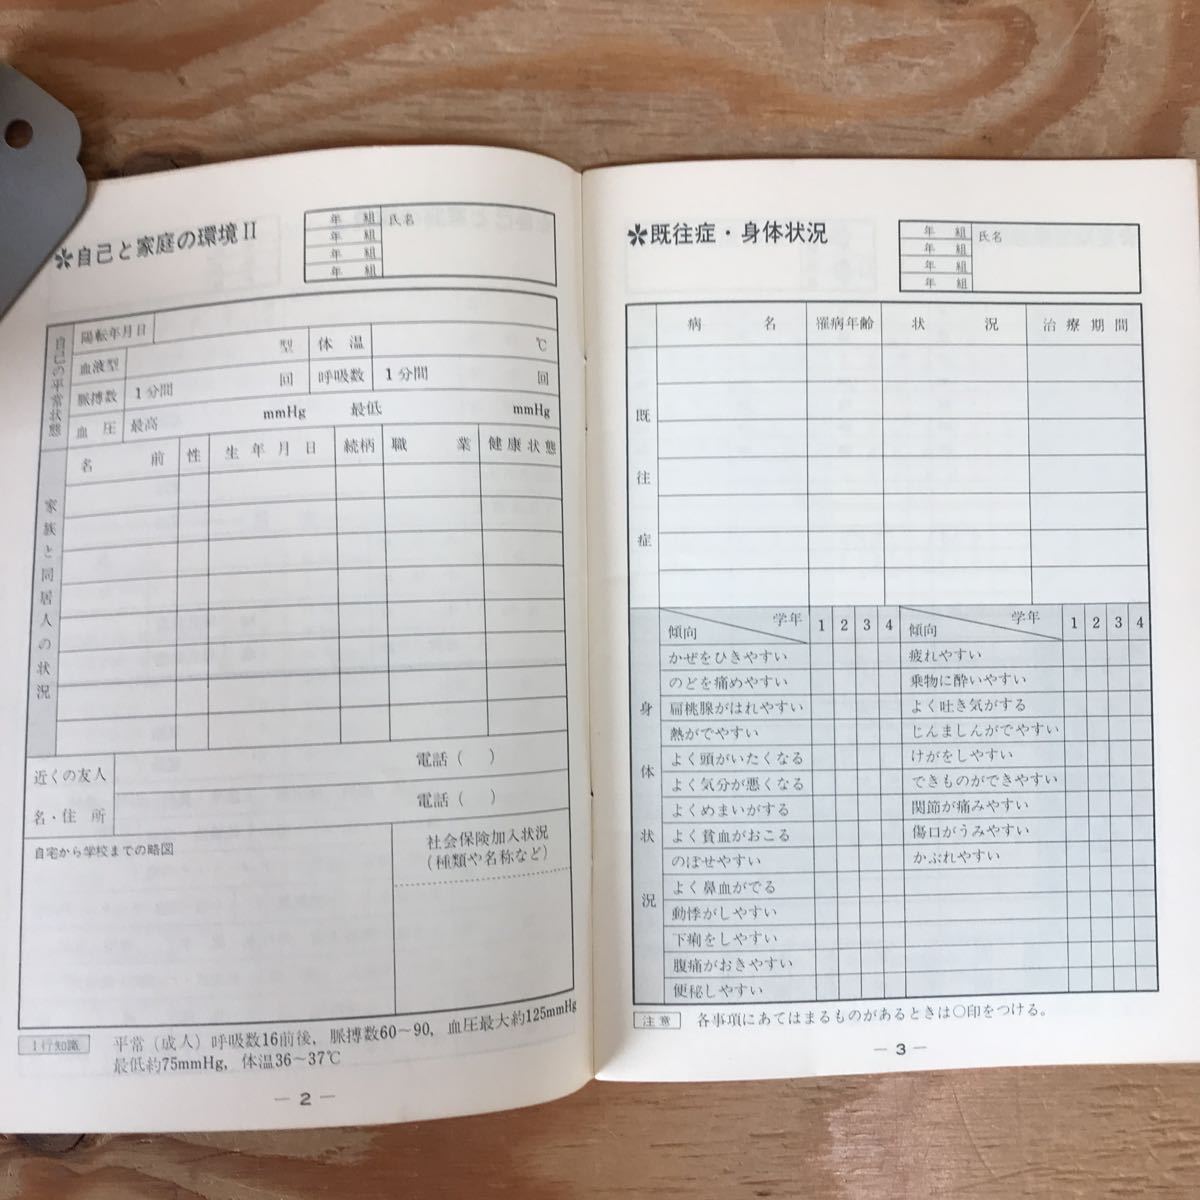 ✲自己と家庭の環境II
年 組 氏名
年 組
年 組
年 組
自己の平常状態
陽転年月日
血液型 型 体温 ℃
脈搏数 1分間 回 呼吸数 1分間 回
血圧 最高 mmHg 最低 mmHg
家族と同居人の状況
名前 性 生年月日 続柄 職業 健康状態
近くの友人
名・住所
電話( )
電話( )
自宅から学校までの略図
社会保険加入状況
(種類や名称など)
1行知識 平常(成人)呼吸数16前後, 脈搏数60~90, 血圧最大約125mmHg
最低約75mmHg, 体温36~37℃
— 2 —
✲既往症・身体状況
年 組 氏名
年 組
年 組
年 組
既往症
病名 罹病年齢 状況 治療期間
身体状況
学年 傾向 1 2 3 4 学年 傾向 1 2 3 4
かぜをひきやすい 疲れやすい
のどを痛めやすい 乗物に酔いやすい
扁桃腺がはれやすい よく吐き気がする
熱がでやすい じんましんがでやすい
よく頭がいたくなる けがをしやすい
よく気分が悪くなる できものができやすい
よくめまいがする 関節が痛みやすい
よく貧血がおこる 傷口がうみやすい
のぼせやすい かぶれやすい
よく鼻血がでる
動悸がしやすい
下痢をしやすい
腹痛がおきやすい
便秘しやすい
注意 各事項にあてはまるものがあるときは○印をつける。
— 3 —